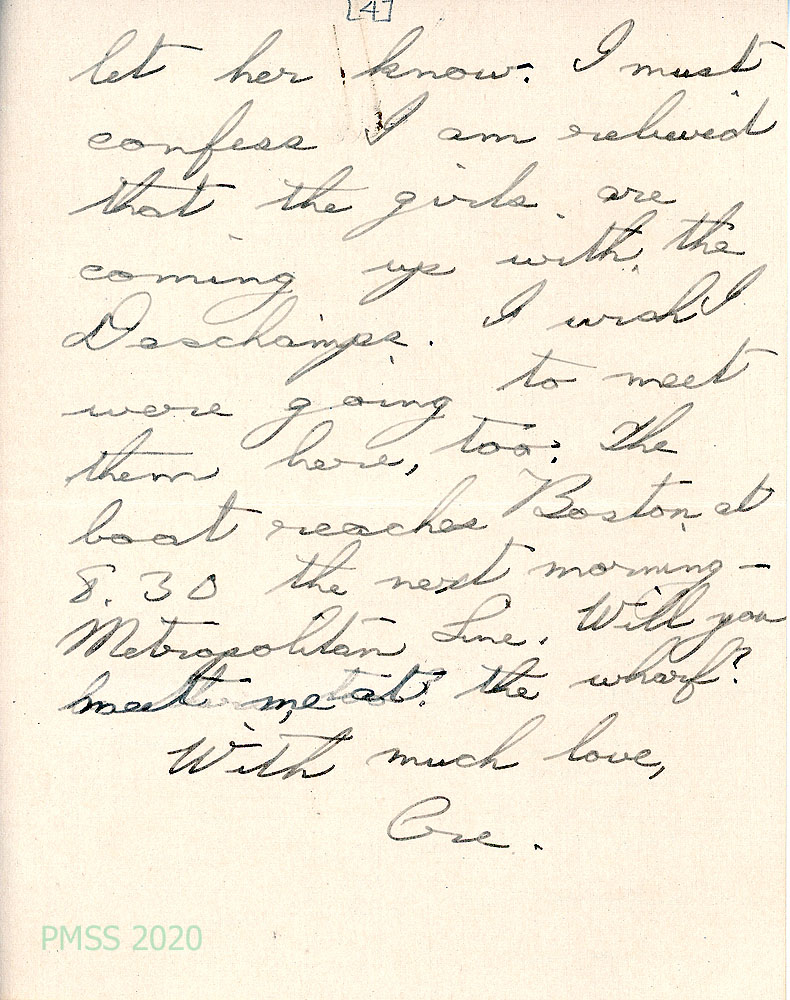 [4]
let her know. I must
confess I am relieved
that the girls are
coming up with the
Deschamps. I wish I
were going to meet
them here, too. The
boat reaches Boston at
8.30 the next morning –
Metropolitan Line. Will you
meet me at the wharf?
With much love,
PMSS 2020